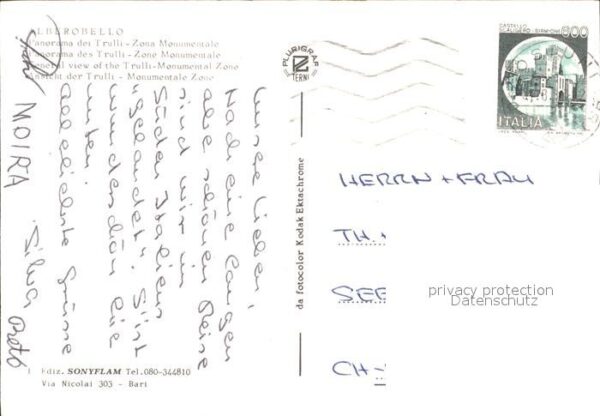 ALBEROBELLO
Panorama dei Trulli - Zona Monumentale
Panorama des Trulli - Zone Monumentale
General view of the Trulli - Monumental Zone
Ansicht der Trulli - Monumentale Zone
Unsere Lieben,
Nach eine langen
aber schönen Reise
sind wir in
Süden Italien
"gelandet".
wunderschön hie
unten.
Allerliebste Grüsse
Silvia
MOIRA
Ediz. SONYFLAM Tel.080-344810
Via Nicolai 303 - Bari
da fotocolor Kodak Ektachrome
PLURIGRAF
TERNI
CASTELLO
SCALIGERO - SIRMIONE
800
ITALIA
HERRN + FRAU
TH.
SEE
CH-
privacy protection
Datenschutz